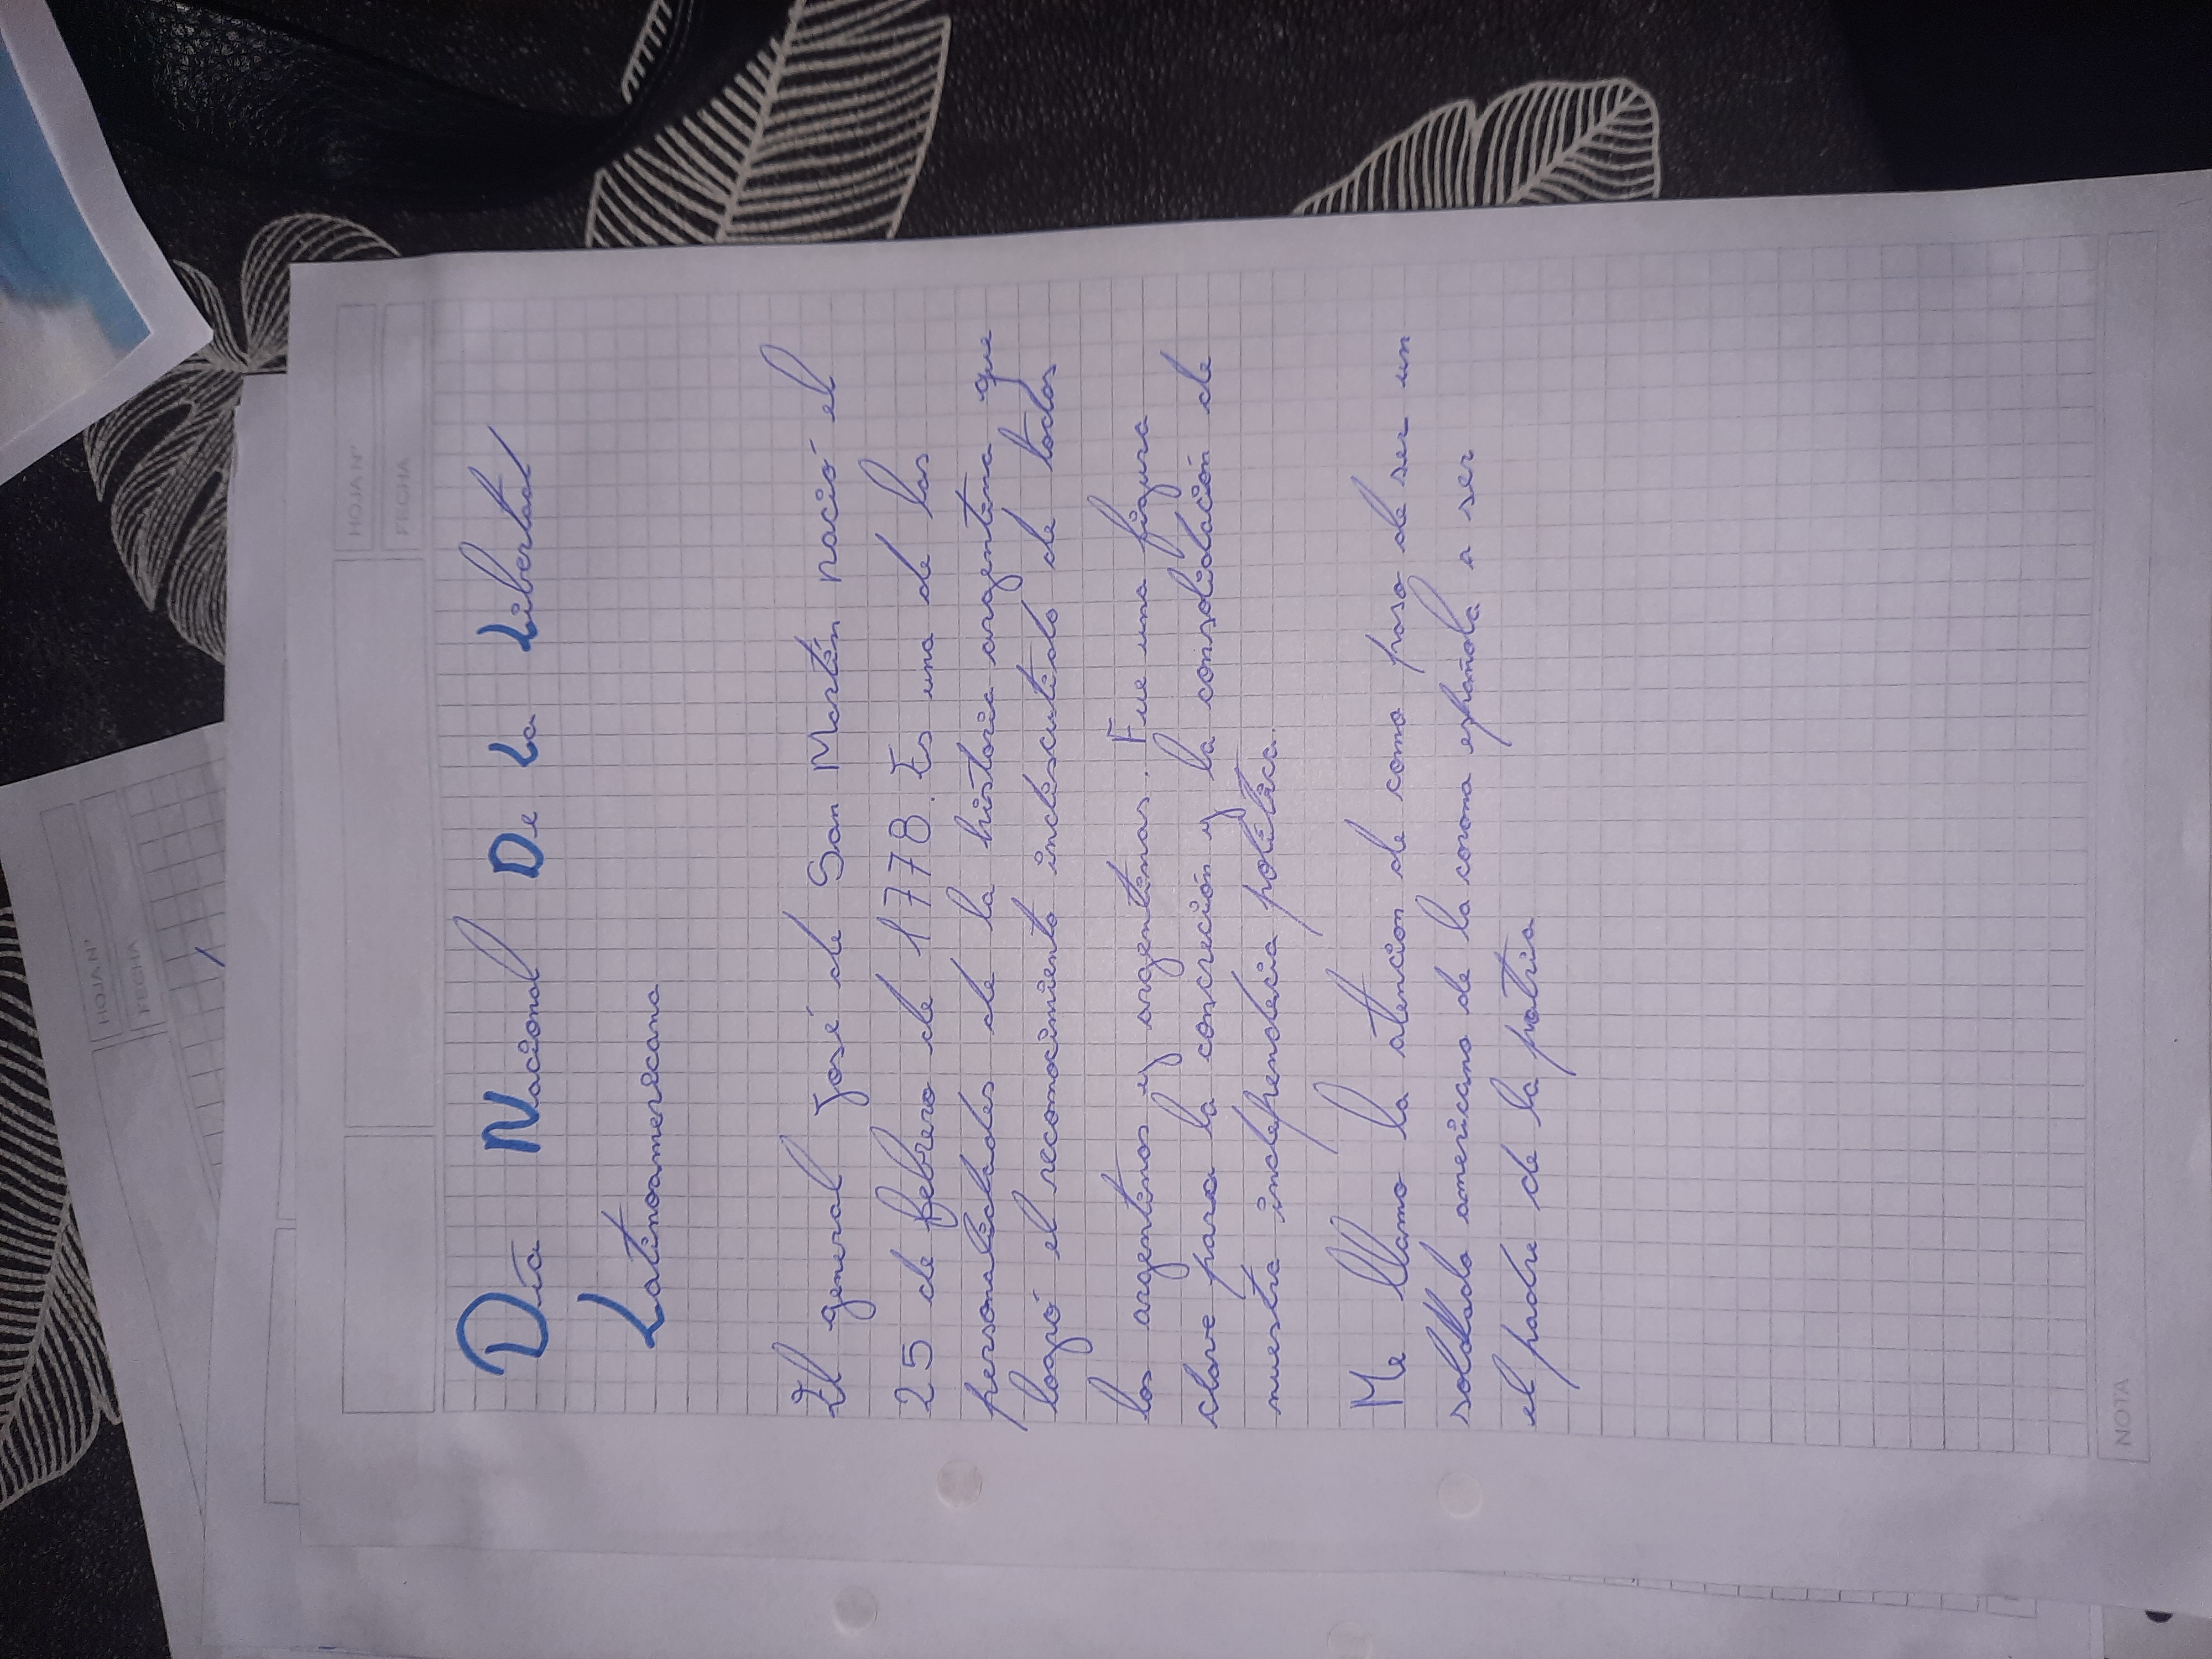 HOJA Nº
FECHA
Día Nacional De La Libertad
Latinoamericana
El general José de San Martín nació el
25 de febrero de 1778. Es una de las
personalidades de la historia argentina que
logró el reconocimiento indiscutido de todos
los argentinos y argentinas. Fue una figura
clave para la concreción y la consolidación de
nuestra independecia política.
Me llamo la atencion de como paso de ser un
soldado americano de la corona española a ser
el padre de la patria
NOTA
HOJA Nº
FECHA